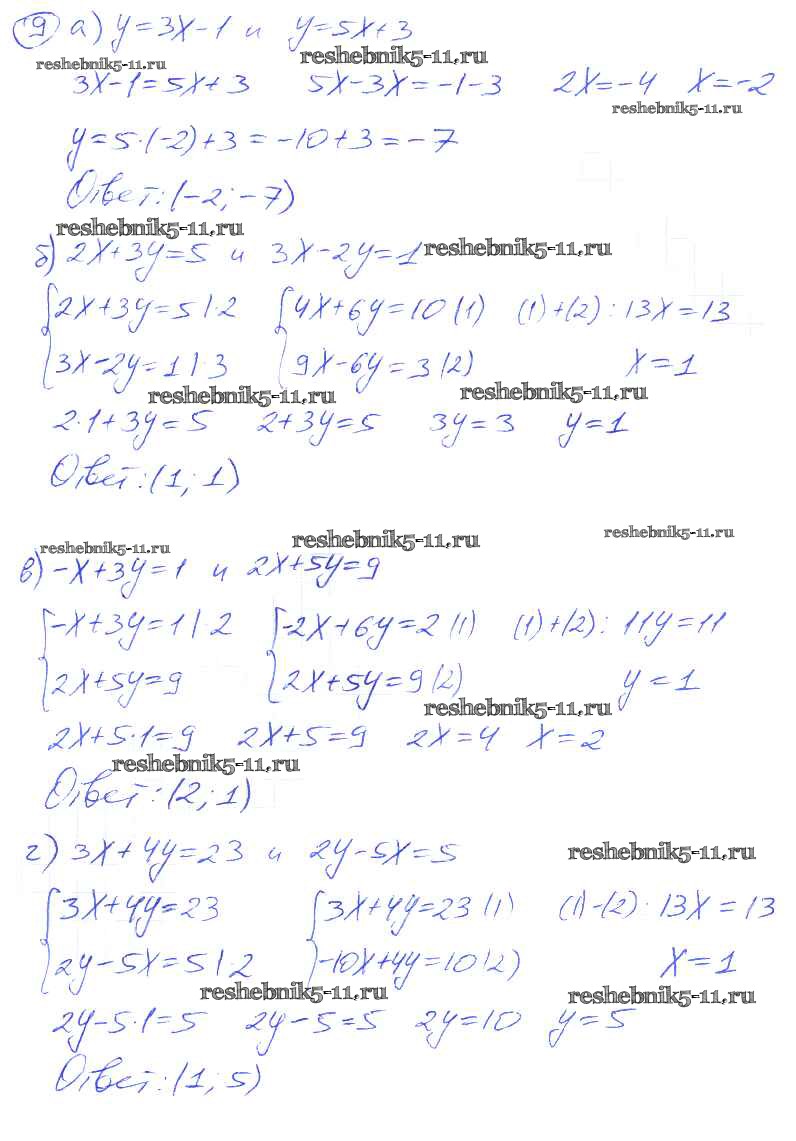 9 а) y=3x-1 и y=5x+3
reshebnik5-11.ru reshebnik5-11.ru
3x-1=5x+3 5x-3x=-1-3 2x=-4 x=-2
reshebnik5-11.ru
y=5·(-2)+3=-10+3=-7
Ответ: (-2; -7)
reshebnik5-11.ru
б) 2x+3y=5 и 3x-2y=1 reshebnik5-11.ru
{2x+3y=5 |·2 {4x+6y=10 (1) (1)+(2): 13x=13
{3x-2y=1 |·3 {9x-6y=3 (2) x=1
reshebnik5-11.ru reshebnik5-11.ru
2·1+3y=5 2+3y=5 3y=3 y=1
Ответ: (1; 1)
reshebnik5-11.ru reshebnik5-11.ru reshebnik5-11.ru
в) -x+3y=1 и 2x+5y=9
{-x+3y=1 |·2 {-2x+6y=2 (1) (1)+(2): 11y=11
{2x+5y=9 {2x+5y=9 (2) y=1
reshebnik5-11.ru
2x+5·1=9 2x+5=9 2x=4 x=2
reshebnik5-11.ru
Ответ: (2; 1)
г) 3x+4y=23 и 2y-5x=5 reshebnik5-11.ru
{3x+4y=23 {3x+4y=23 (1) (1)-(2): 13x=13
{2y-5x=5 |·2 {-10x+4y=10 (2) x=1
reshebnik5-11.ru reshebnik5-11.ru
2y-5·1=5 2y-5=5 2y=10 y=5
Ответ: (1; 5)